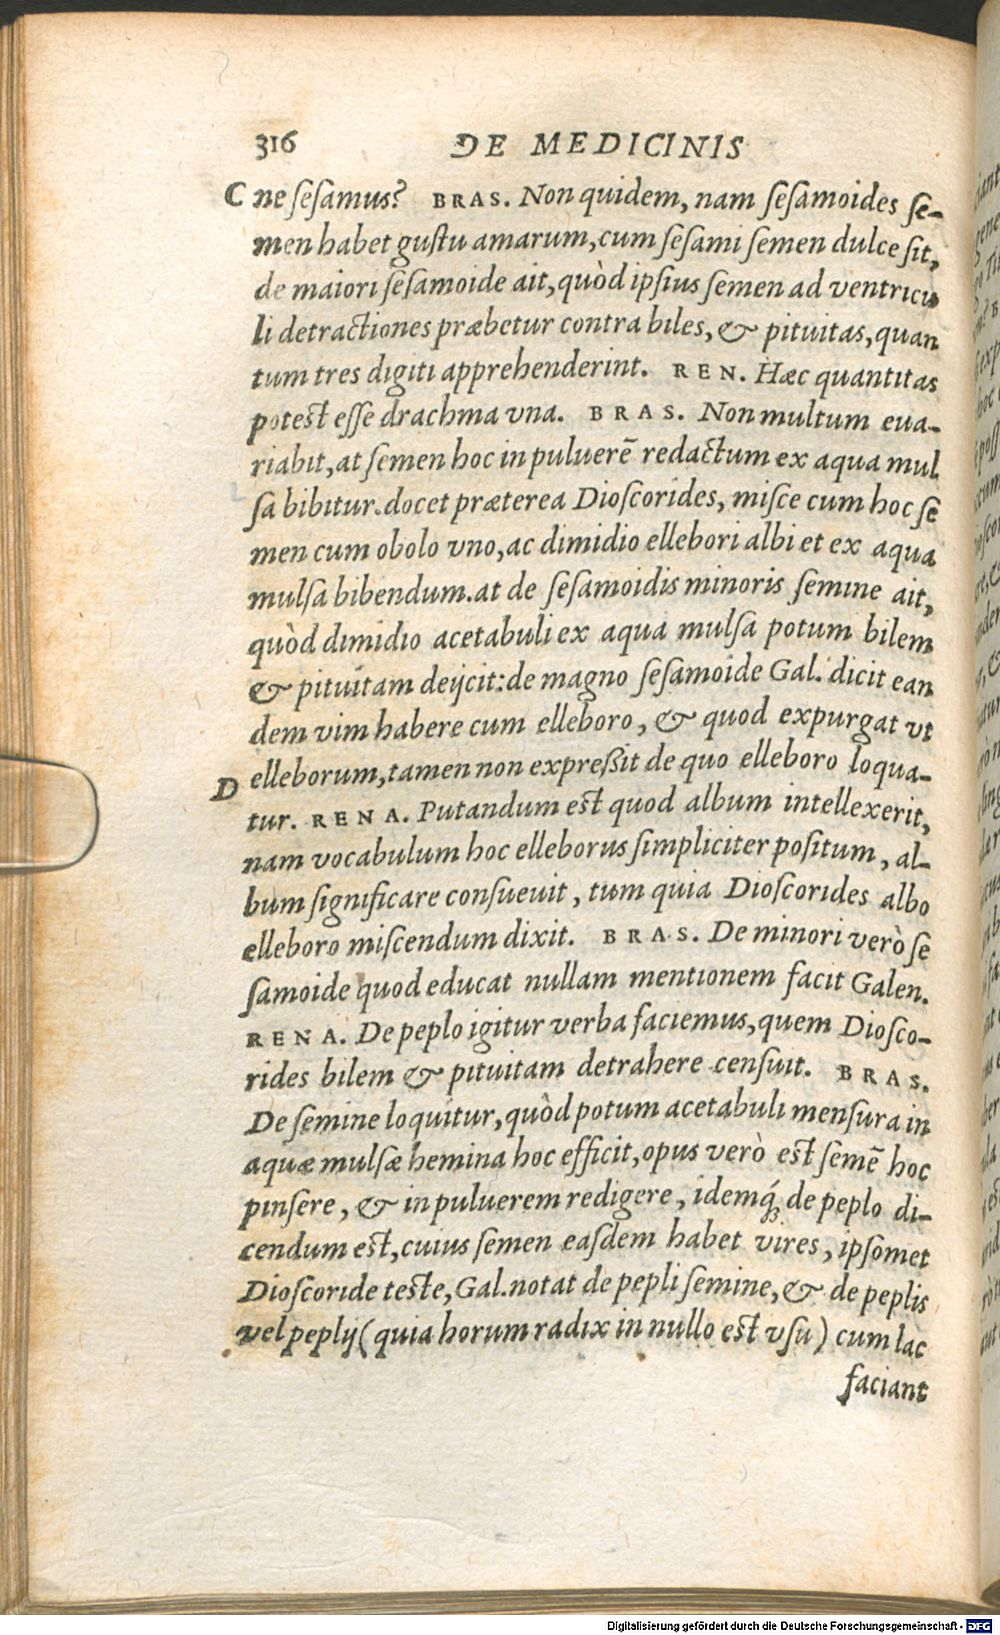 316 DE MEDICINIS
C ne sesamus? BRAS. Non quidem, nam sesamoides se-
men habet gustu amarum, cum sesami semen dulce sit,
de maiori sesamoide ait, quòd ipsius semen ad ventricu
li detractiones præbetur contra biles, & pituitas, quan
tum tres digiti apprehenderint. REN. Hæc quantitas
potest esse drachma vna. BRAS. Non multum eua-
riabit, at semen hoc in puluerē redactum ex aqua mul
sa bibitur. docet præterea Dioscorides, misce cum hoc se
men cum obolo vno, ac dimidio ellebori albi et ex aqua
mulsa bibendum. at de sesamoidis minoris semine ait,
quòd dimidio acetabuli ex aqua mulsa potum bilem
& pituitam deijcit: de magno sesamoide Gal. dicit ean
dem vim habere cum elleboro, & quod expurgat vt
D elleborum, tamen non expressit de quo elleboro loqua-
tur. RENA. Putandum est quod album intellexerit,
nam vocabulum hoc elleborus simpliciter positum, al-
bum significare consueuit, tum quia Dioscorides albo
elleboro miscendum dixit. BRAS. De minori verò se
samoide quod educat nullam mentionem facit Galen.
RENA. De peplo igitur verba faciemus, quem Diosco-
rides bilem & pituitam detrahere censuit. BRAS.
De semine loquitur, quòd potum acetabuli mensura in
aquæ mulsæ hemina hoc efficit, opus verò est semē hoc
pinsere, & in puluerem redigere, idemq́; de peplo di-
cendum est, cuius semen easdem habet vires, ipsomet
Dioscoride teste, Gal. notat de pepli semine, & de peplis
vel peplij (quia horum radix in nullo est vsu) cum lac
faciant
Digitalisierung gefördert durch die Deutsche Forschungsgemeinschaft - DFG